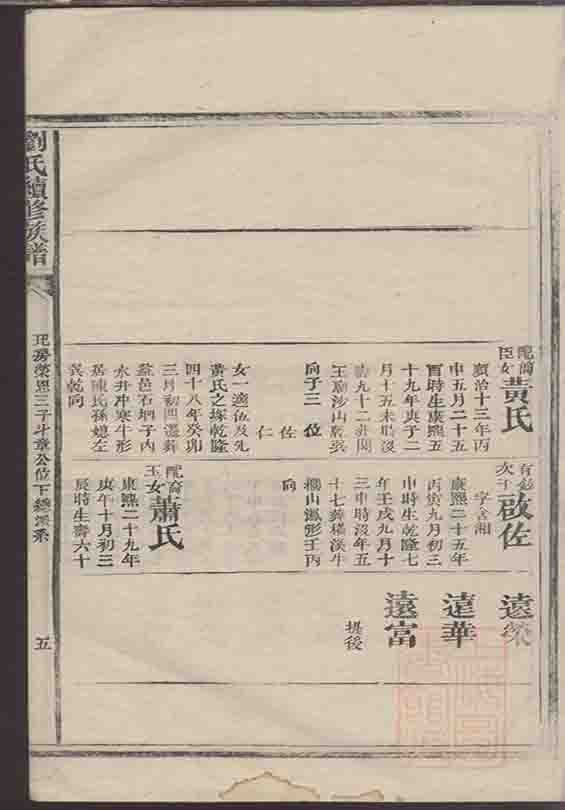 劉氏續修族譜
玘房榮恩三子斗章公位下總派系
五
配裔
臣女
黃氏
順治十三年丙
申五月二十五
酉時生康熙五
十九年庚子二
月十五未時沒
壽九十二井岡
王廟沙山乾巽
向子三位
佐
仁
女一適伍及先
黃氏之塚乾隆
四十八年癸卯
三月初四遷葬
益邑石垇子內
水井冲寒牛形
居陳氏孫媳左
巽乾向
有彩
次子
啟佐
字金湘
康熙二十五年
丙寅九月初三
申時生乾隆七
年壬戌九月十
三申時沒年五
十七葬橫溪牛
欄山鳳形壬丙
向
配裔
玉女
蕭氏
康熙二十九年
庚午十月初三
辰時生壽六十
遠榮
遠華
遠富
提後